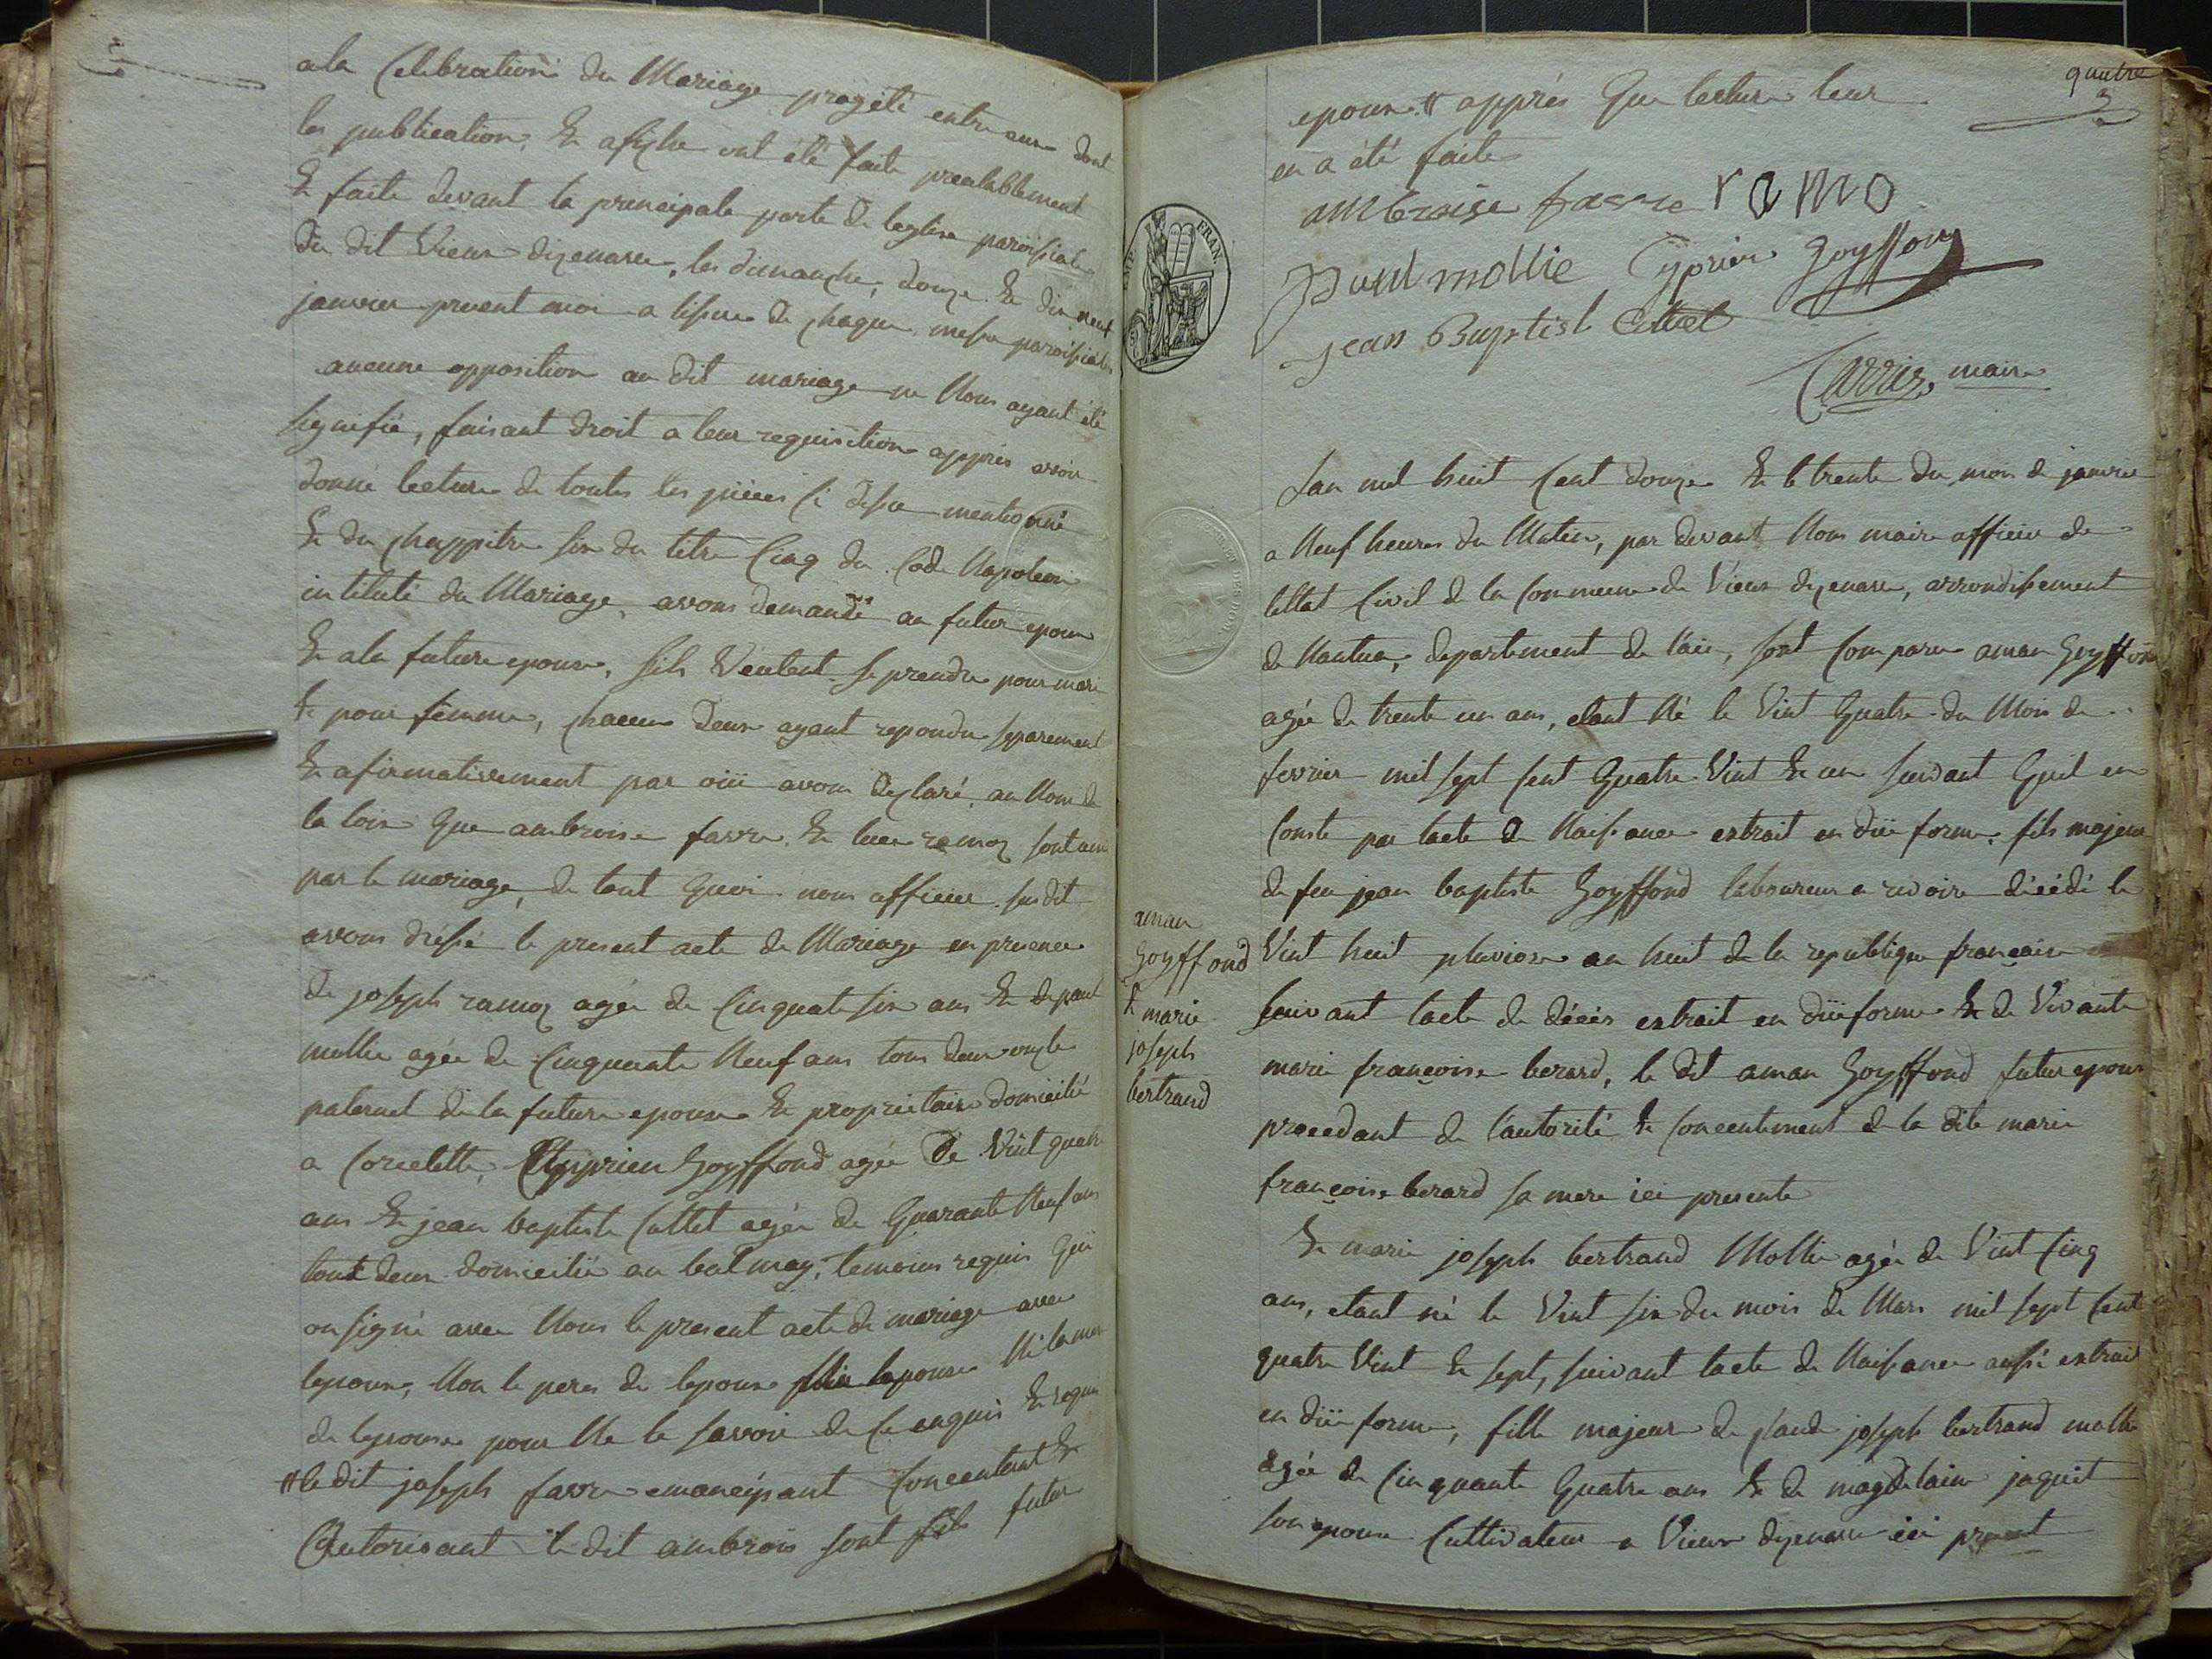 a la Celebration du Mariage progeté entre eux dont
les publication & afiche ont été faite prealablement
& faite devant la principale porte de leglise paroissiale
du dit Vieux dizenave, les dimanche, douze & dix neuf
janvier present moi a lissue de chaque messe paroissiale
aucune opposition au dit mariage ne Nous ayant été
signifié, faisant droit a leur requisition apprés avoir
donné lecture de toutes les pièces Ci dessu mentionné
& du chappitre six du titre Cinq du Code Napoleon
intitulé du Mariage, avons demandé au futur epoux
& a la future epouse, sils Veulent se prendre pour mari
& pour femme, chacun deux ayant repondu separement
& afirmativement par oüi avons declaré, au Nom de
la loix que ambroise favre & luce ramoz sont uni
par le mariage, de tout quoi nous officier susdit
avons dréssé le present acte de Mariage en presence
de joseph ramoz agée de Cinquate six ans & de paul
mollie agée de Cinquante Neuf ans tous deux oncle
paternel de la future epouse & proprietaire domicilié
a Corcelette, Cyprien Goyffond agée De Vint quatre
ans & jean baptiste Cuttet agée de Quarante Neuf ans
tout deux domicilié au balmay, temoins requis qui
on signé avec Nous le present acte de mariage avec
lepoux, Non le peres de lepoux Ni lepouse Ni la mere
de lepouse pour Ne le savoir de Ce enquis & requis
# le dit joseph favre emancipant Concentant &
Autorisant le dit ambrois sont fils futur
quatre
epoux # apprés que lecture leur
en a été faite
ambroise favre ramo
Paul mollie Cyprien Goyffon
jean Baptist Cuttet
Carrier, maire
EMP. FRAN.
Lan mil huit Cent douze & le trente du mois de janvier
a Neuf heures du Matin, par devant Nous maire officier de
lettat Civil de la Commune de Vieux dizenave, arrondissement
de Nantua, departement de l'ain, sont Comparu aman Goyffond
agée de trente un ans, etant Né le Vint Quatre du Mois de
fevrier mil sept Cent Quatre Vint & un suivant Quil en
Conste par lacte de Naissance extrait en düe forme, fils majeur
de feu jean baptiste Goyffond laboureur a rivoire décédé le
Vint huit pluviose an huit de la republique française
suivant lacte de décés extrait en düe forme & de Vivante
marie françoise berard, le dit aman Goyffond futur epoux
procedant de l'autorité & Concentement de la dite marie
françoise berard sa mere ici presente
& marie joseph bertrand Mollie agée de Vint Cinq
ans, etant né le Vint six du mois de Mars mil sept Cent
quatre Vint & sept, suivant lacte de Naissance aussi extrait
en düe forme, fille majeur de claude joseph bertrand mollie
agée de Cinquante Quatre ans & de magdelaine jaquit
son epouse Cultivateur a Vieux dizenave ici present
aman
Goyffond
& marie
joseph
bertrand